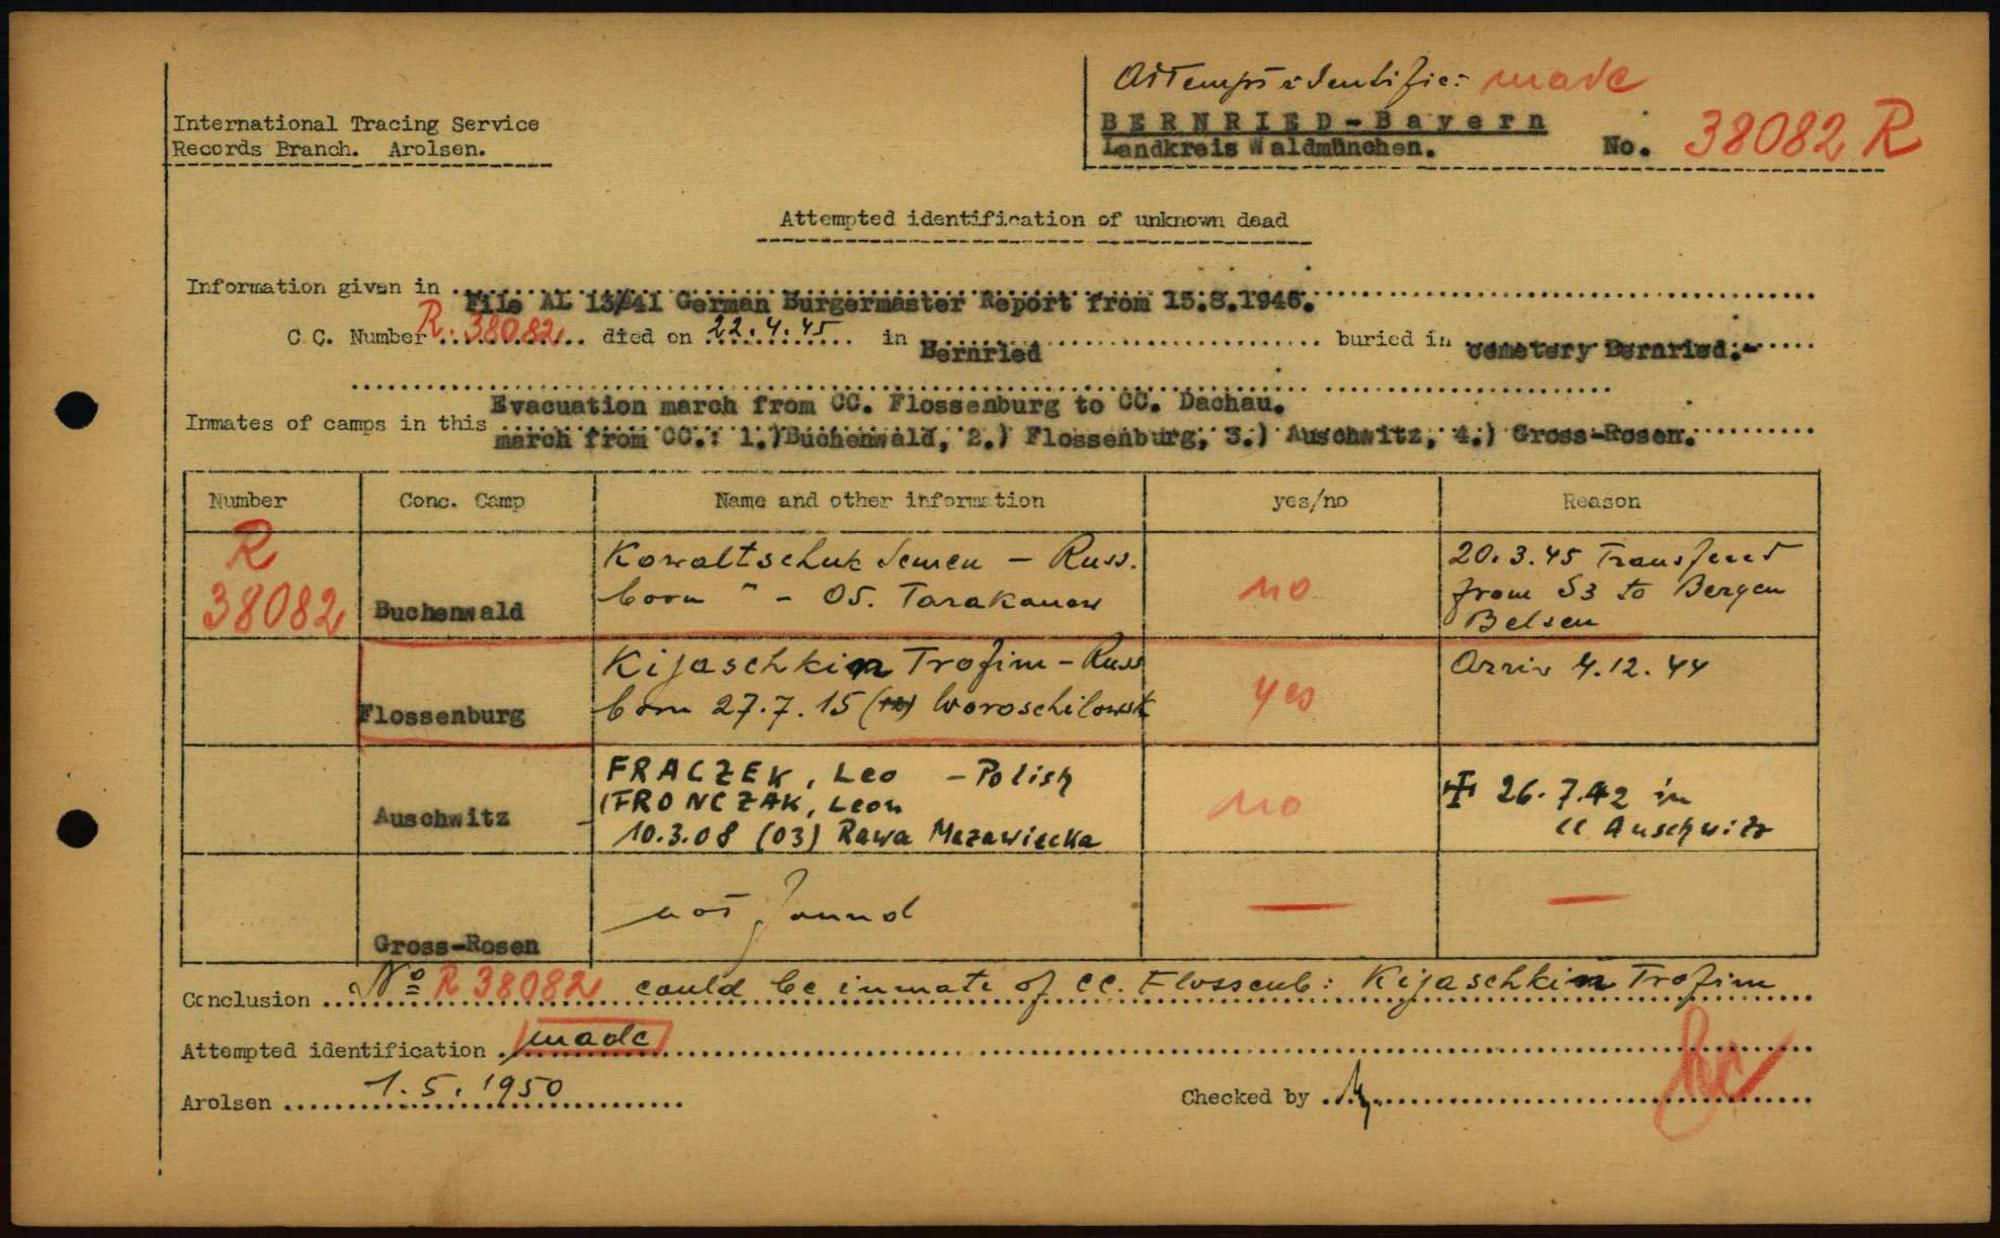 Attempt identific: made
International Tracing Service
Records Branch. Arolsen.
BERNRIED-Bayern
Landkreis Waldmünchen.
No. 38082 R
Attempted identification of unknown dead
Information given in File AL 13/41 German Burgermaster Report from 15.8.1946.
C.C. Number R. 38082 died on 22.4.45 in Bernried buried in cemetery Bernried.-
Evacuation march from CC. Flossenburg to CC. Dachau.
Inmates of camps in this march from CC.: 1.) Buchenwald, 2.) Flossenburg, 3.) Auschwitz, 4.) Gross-Rosen.
Number Conc. Camp Name and other information yes/no Reason
R
38082
Buchenwald
Kowaltschuk Semen - Russ.
born " - 05. Tarakanow
no
20.3.45 Transferet
from S3 to Bergen
Belsen
Flossenburg
Kijaschkin Trofim - Russ
born 27.7.15 (12) Woroschilowsk
yes
Arriv 4.12.44
Auschwitz
FRACZEK, Leo - Polish
(FRONCZAK, Leon
10.3.08 (03) Rawa Mazawiecka
no
✠ 26.7.42 in
CC Auschwitz
Gross-Rosen
not found
— —
Conclusion No R 38082 could be inmate of CC. Flossenb: Kijaschkin Trofim
Attempted identification made
Arolsen 1.5.1950
Checked by